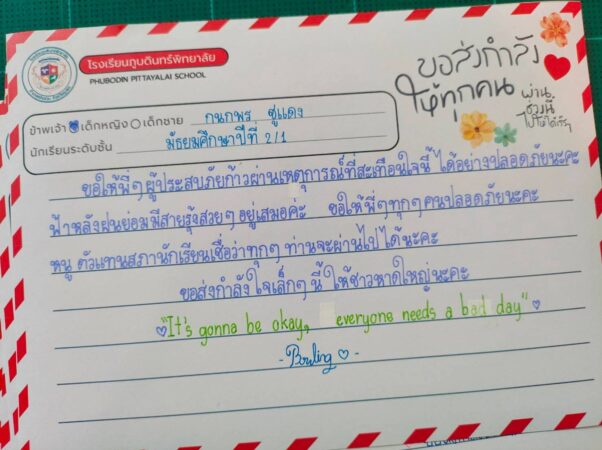 โรงเรียนภูบดินทร์พิทยาลัย
PHUBODIN PITTAYALAI SCHOOL
ขอส่งกำลัง
ให้ทุกคน
ผ่าน
ช่วงนี้
ไปได้
ข้าพเจ้า เด็กหญิง เด็กชาย กนกพร ชูแดง
นักเรียนระดับชั้น มัธยมศึกษาปีที่ 2/1
ขอให้พี่ๆผู้ประสบภัยก้าวผ่านเหตุการณ์ที่สะเทือนใจนี้ ได้อย่างปลอดภัยนะคะ
ฟ้าหลังฝนย่อมมีสายรุ้งสวยๆ อยู่เสมอค่ะ ขอให้พี่ๆทุกๆคนปลอดภัยนะคะ
หนู ตัวแทนสภานักเรียนเชื่อว่าทุกๆ ท่านจะผ่านไปได้นะคะ
ขอส่งกำลังใจเล็กๆนี้ ให้ชาวหาดใหญ่นะคะ
"It's gonna be okay, everyone needs a bad day"
- Bowling ♡ -